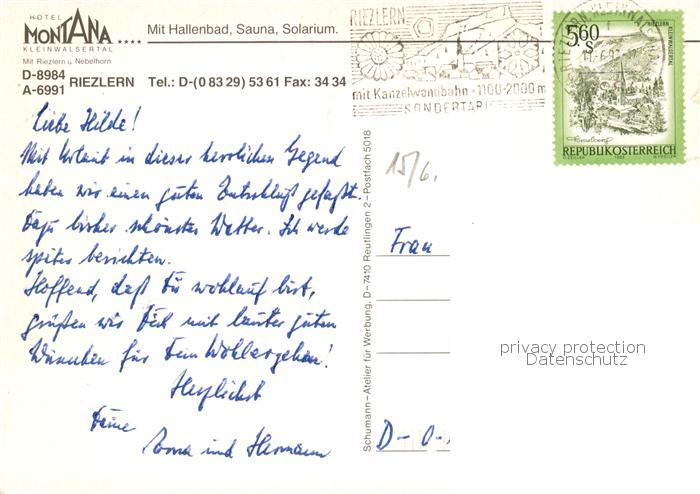 HOTEL
MONTANA
KLEINWALSERTAL
.... Mit Hallenbad, Sauna, Solarium.
Mit Riezlern u Nebelhorn
D-8984
A-6991 RIEZLERN Tel.: D-(0 83 29) 53 61 Fax: 34 34
Liebe Hilde!
Mit Urlaub in dieser herrlichen Gegend
haben wir einen guten Entschluß gefaßt.
Dazu bisher schönstes Wetter. Ich werde
später berichten.
Hoffend, daß Du wohlauf bist,
grüßen wir Dich mit lauter guten
Wünschen für Dein Wohlergehen!
Herzlichst
Deine
und Hermann
Schumann–Atelier für Werbung, D–7410 Reutlingen 2–Postfach 5018
RIEZLERN
mit Kanzelwandbahn - 1100-2000 m
SONDERTARIFE
RIEZLERN, KLEINWAL
5.60
S
RIEZLERN
KLEINWALSERTAL
REPUBLIK ÖSTERREICH
15/6.
Frau
D-
privacy protection
Datenschutz